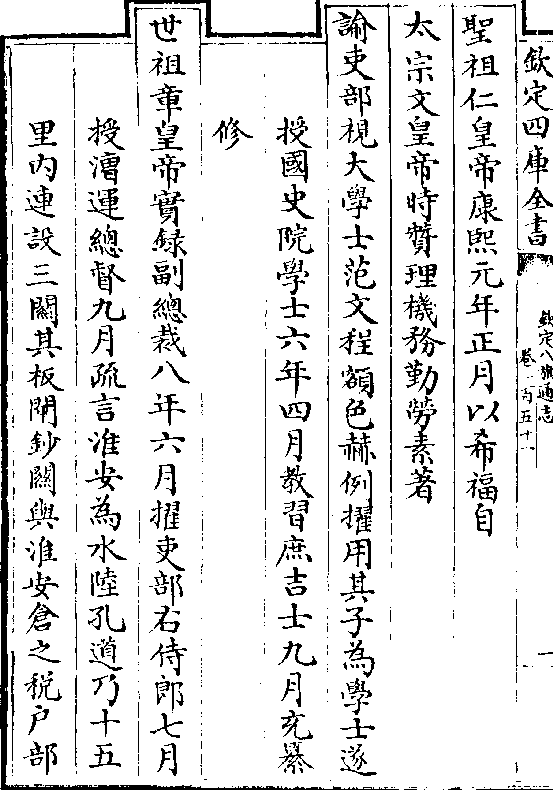 欽定四庫全書
欽定八旗通志
卷一百五十一
聖祖仁皇帝康熙元年正月以希福自
太宗文皇帝時贊理機務勤勞素著
諭吏部視大學士范文程額色赫例擢用其子為學士遂
授國史院學士六年四月教習庶吉士九月充纂
修
世祖章皇帝實録副總裁八年六月擢吏部右侍郎七月
授漕運總督九月疏言淮安為水陸孔道乃十五
里内連設三關其板閘鈔關與淮安倉之税户部